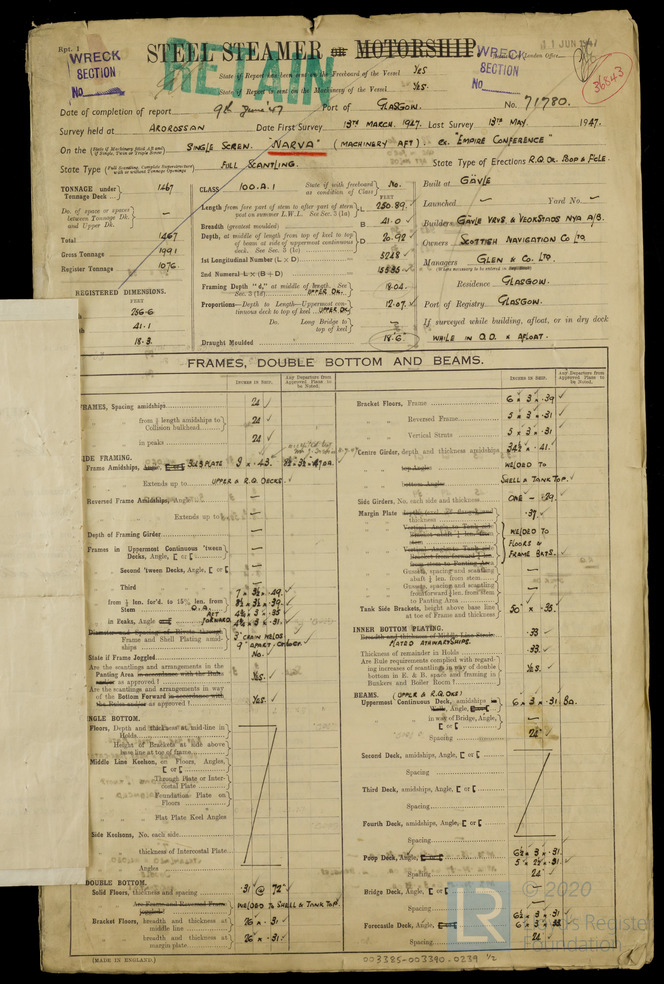 Rpt. 1
WRECK SECTION
No.
RETAIN
STEEL STEAMER or MOTORSHIP.
WRECK SECTION
No.
11 JUN 1947
State of Report has been sent on the Freeboard of the Vessel Yes
State of Report is sent on the Machinery of the Vessel Yes.
36843
Date of completion of report 9th June '47 Port of GLASGOW. No. 71780.
Survey held at ARDROSSAN Date First Survey 13TH MARCH, 1947. Last Survey 13TH MAY. 1947.
On the SINGLE SCREW "NARVA" (MACHINERY AFT) ex. "EMPIRE CONFERENCE"
State Type FULL SCANTLING. State Type of Erections R.Q. DK. POOP & FCLE.
TONNAGE under Tonnage Deck 1467
Do. of space or spaces between Tonnage Dk. and Upper Dk. —
Total 1467
Gross Tonnage 1991
Register Tonnage 1076
REGISTERED DIMENSIONS.
FEET
256.6
41.1
18.3.
CLASS 100.A.1 State if with freeboard as condition of Class No.
FEET
Length from fore part of stem to after part of stern post on summer L.W.L. See Sec. 2 (1a) L 250.89.
Breadth (greatest moulded) B 41.0
Depth, at middle of length from top of keel to top of beam at side of uppermost continuous deck. See Sec. 2 (1c) D 20.92
1st Longitudinal Number (L × D) 5248
2nd Numeral L × (B + D)
Framing Depth "d," at middle of length. See Sec. 3 (1d) UPPER DK. 18.04.
Proportions—Depth to Length—Uppermost continuous deck to top of keel UPPER DK. 12.07.
Do. Long Bridge to top of keel —
Draught Moulded 18'.6"
Built at GÄVLE
Launched — Yard No. —
Builders GÄVLE VARVS & VERKSTADS NYA A/B.
Owners SCOTTISH NAVIGATION CO LTD
Managers GLEN & CO. LTD.
(Where necessary to be entered in Register)
Residence GLASGOW.
Port of Registry GLASGOW.
If surveyed while building, afloat, or in dry dock
WHILE IN D.D. & AFLOAT.
FRAMES, DOUBLE BOTTOM AND BEAMS.
INCHES IN SHIP.
Any Departure from Approved Plans to be Noted.
INCHES IN SHIP.
Any Departure from Approved Plans to be Noted.
FRAMES, Spacing amidships 24
from ⅕ length amidships to Collision bulkhead 24
in peaks 24
SIDE FRAMING.
Frame Amidships, Angle, BULB PLATE 9 × .43.
Extends up to UPPER & R.Q. DECKS.
Reversed Frame Amidships, Angle —
Extends up to —
Depth of Framing Girder —
Frames in Uppermost Continuous 'tween Decks, Angle, [ or [ —
Second 'tween Decks, Angle, [ or [ —
Third —
from ⅕ len. for'd. to 15% len. from Stem 7 × 3½ × .49.
in Peaks, Angle AFT
FORWARD. 4½ × 3 × .31
Diameter and Spacing of Rivets through Frame and Shell Plating amidships 3" CHAIN WELDS 9" APART
State if Frame Joggled No.
Are the scantlings and arrangements in the Panting Area in accordance with the Rules and/or as approved? Yes.
Are the scantlings and arrangements in way of the Bottom Forward in accordance with the Rules and/or as approved? Yes.
SINGLE BOTTOM.
Floors, Depth and thickness at mid-line in Holds
Height of Brackets at side above base line at top of frame
Middle Line Keelson, on Floors, Angles, [ or [
Through Plate or Intercostal Plate
Foundation Plate on Floors
Flat Plate Keel Angles
Side Keelsons, No. each side
thickness of Intercostal Plate
Angles
DOUBLE BOTTOM.
Solid Floors, thickness and spacing .31 @ 72"
Are Frame and Reversed Frame joggled? WELDED TO SHELL & TANK TOP.
Bracket Floors, breadth and thickness at middle line 26 × .31
breadth and thickness at margin plate 26 × .31
Bracket Floors, Frame 6 × 3 × .39
Reversed Frame 5 × 3 × .31
Vertical Struts 5 × 3 × .31
Centre Girder, depth and thickness amidships 34½ × .41.
top Angles WELDED TO
bottom Angles SHELL & TANK TOP.
Side Girders, No. each side and thickness ONE – .29.
Margin Plate depth (excl. of flange) and thickness .37
Vertical Angle to Tank side Bracket abaft ¼ len. from Stem WELDED TO
Vertical Angle to Tank side Bracket from ¼ len. from stem to Panting Area FLOORS & FRAME BKTS.
Gussets, spacing and scantling abaft ¼ len. from stem —
Gussets, spacing and scantling forward ¼ len. from stem to Panting Area —
Tank Side Brackets, height above base line at toe of Frame and thickness 50" × .35.
INNER BOTTOM PLATING.
Breadth and thickness of Middle Line Strake PLATED ATHWARTSHIPS. .33
Thickness of remainder in Holds .33.
Are Rule requirements complied with regarding increase of scantlings in way of double bottom in E. & B. space and framing in Bunkers and Boiler Room? Yes.
BEAMS. (UPPER & R.Q. DKS)
Uppermost Continuous Deck, amidships Angle, 6 × 3 × .31 BA.
in way of Bridge, Angle, [ or [ —
Spacing 24"
Second Deck, amidships, Angle, [ or [
Spacing
Third Deck, amidships, Angle, [ or [
Spacing
Fourth Deck, amidships, Angle, [ or [
Spacing
Poop Deck, Angle, 6½ × 3 × .31
5 × 2½ × .31.
Spacing 24"
Bridge Deck, Angle, [ or [ —
Spacing —
Forecastle Deck, Angle, 6½ × 3 × .31
5 × 3 × .31.
Spacing 24"
(MADE IN ENGLAND.)
003385-003390-0239 ½
LR © 2020
Lloyd's Register
Foundation